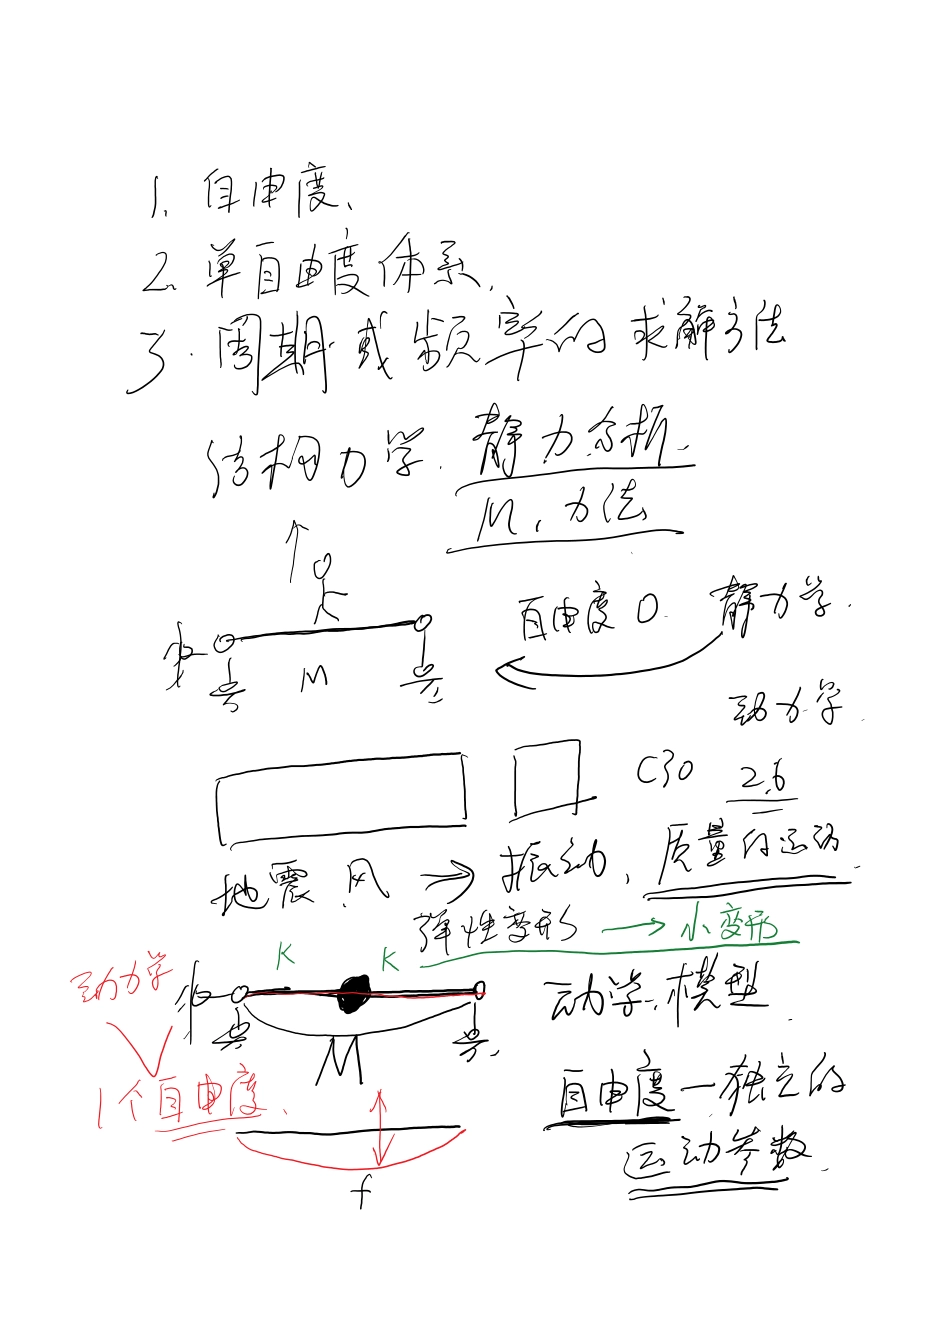 1. 自由度、
2. 单自由度体系.
3. 周期或频率的求解方法
结构力学. 静力分析.
M, 力法
自由度 0. 静力学.
M
动力学.
C30 2.6
地震、风 → 振动, 质量的运动.
弹性变形 → 小变形
K K
动力学
动力学模型.
M
1个自由度.
自由度 — 独立的
运动参数.
f